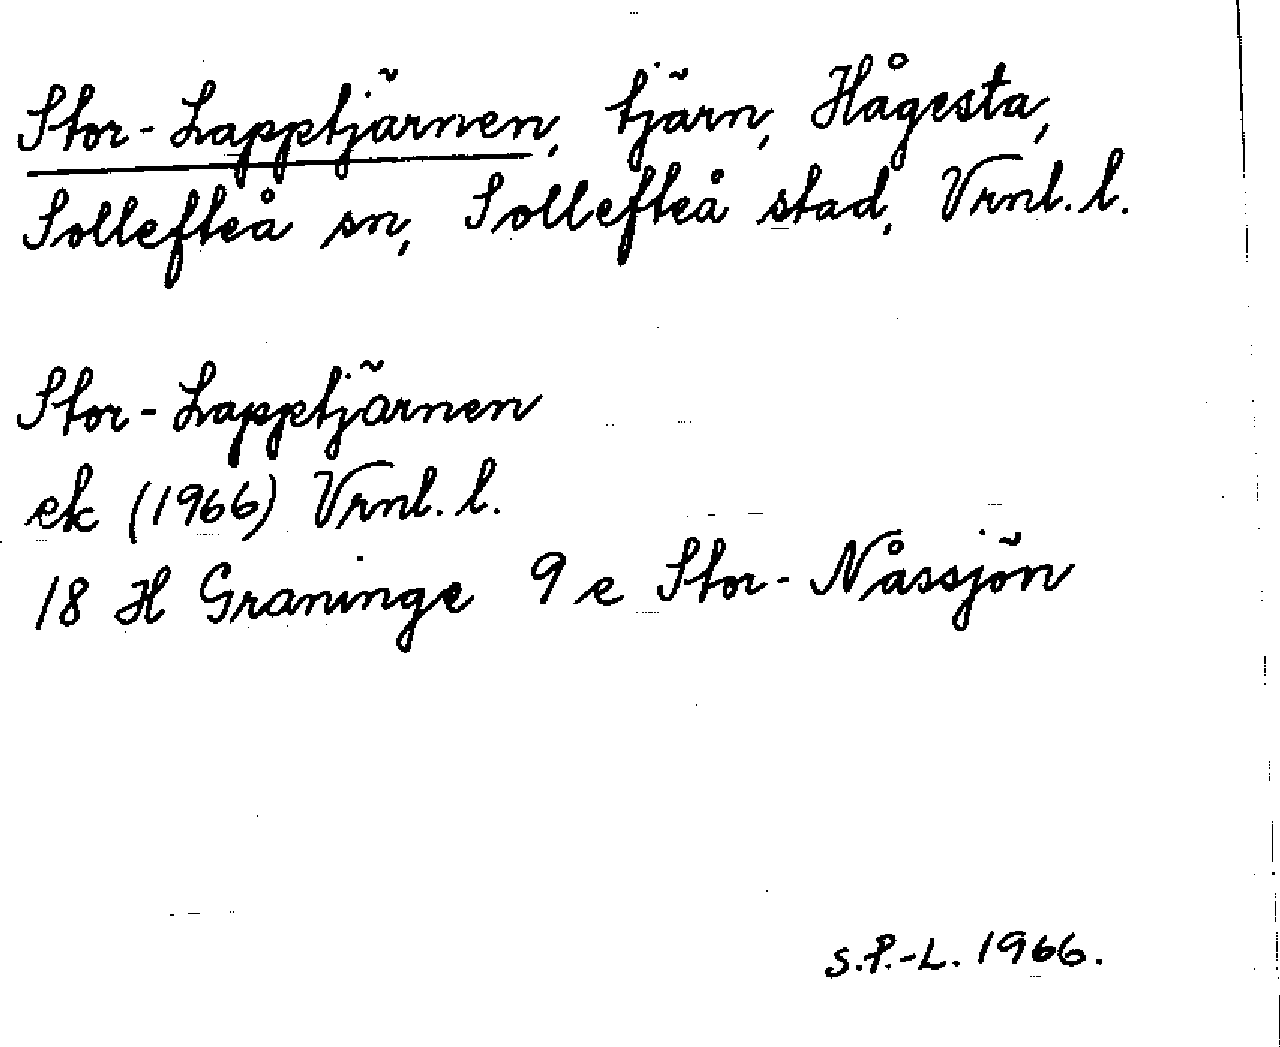 Stor-Lapptjärnen, tjärn, Hågesta,
Sollefteå sn, Sollefteå stad, Vrnl. l.
Stor-Lapptjärnen
ek (1966) Vrnl. l.
18 H Graninge 9 e Stor-Nåssjön
S.P.-L. 1966.